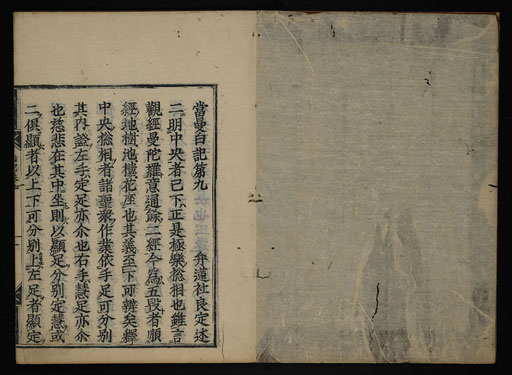 當曼白記第九
弁蓮社良定述
二明中央者已下正是極樂惣相也雖言
觀經曼陀羅意通餘二經今為五段者順
經地樹池樓花座也其義至下可辨矣釋
中央惣相者諸聖衆作業依手足可分別
其内盖左手定足亦尒也右手慧足亦尒
也慈悲在其中坐則以顯足分別定慧或
二俱顯者以上下可分別上左足者顯定